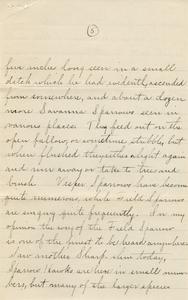 (5)
five inches long seen in a small
ditch which he had evidently ascended
from somewhere, and about a dozen
more Savanna Sparrows seen in
various places. They feed out on the
open fallow, or sometimes stubble, but
when flushed they either alight again
and run away or take to trees and
brush. Vesper Sparrows have become
quite numerous, while Field Sparrows
are singing quite frequently. In my
opinion the song of the Field Sparrow
is one of the finest to be heard anywhere.
Saw another Sharp-shin today,
Sparrow Hawks are here in small num-
bers, but many of the larger species